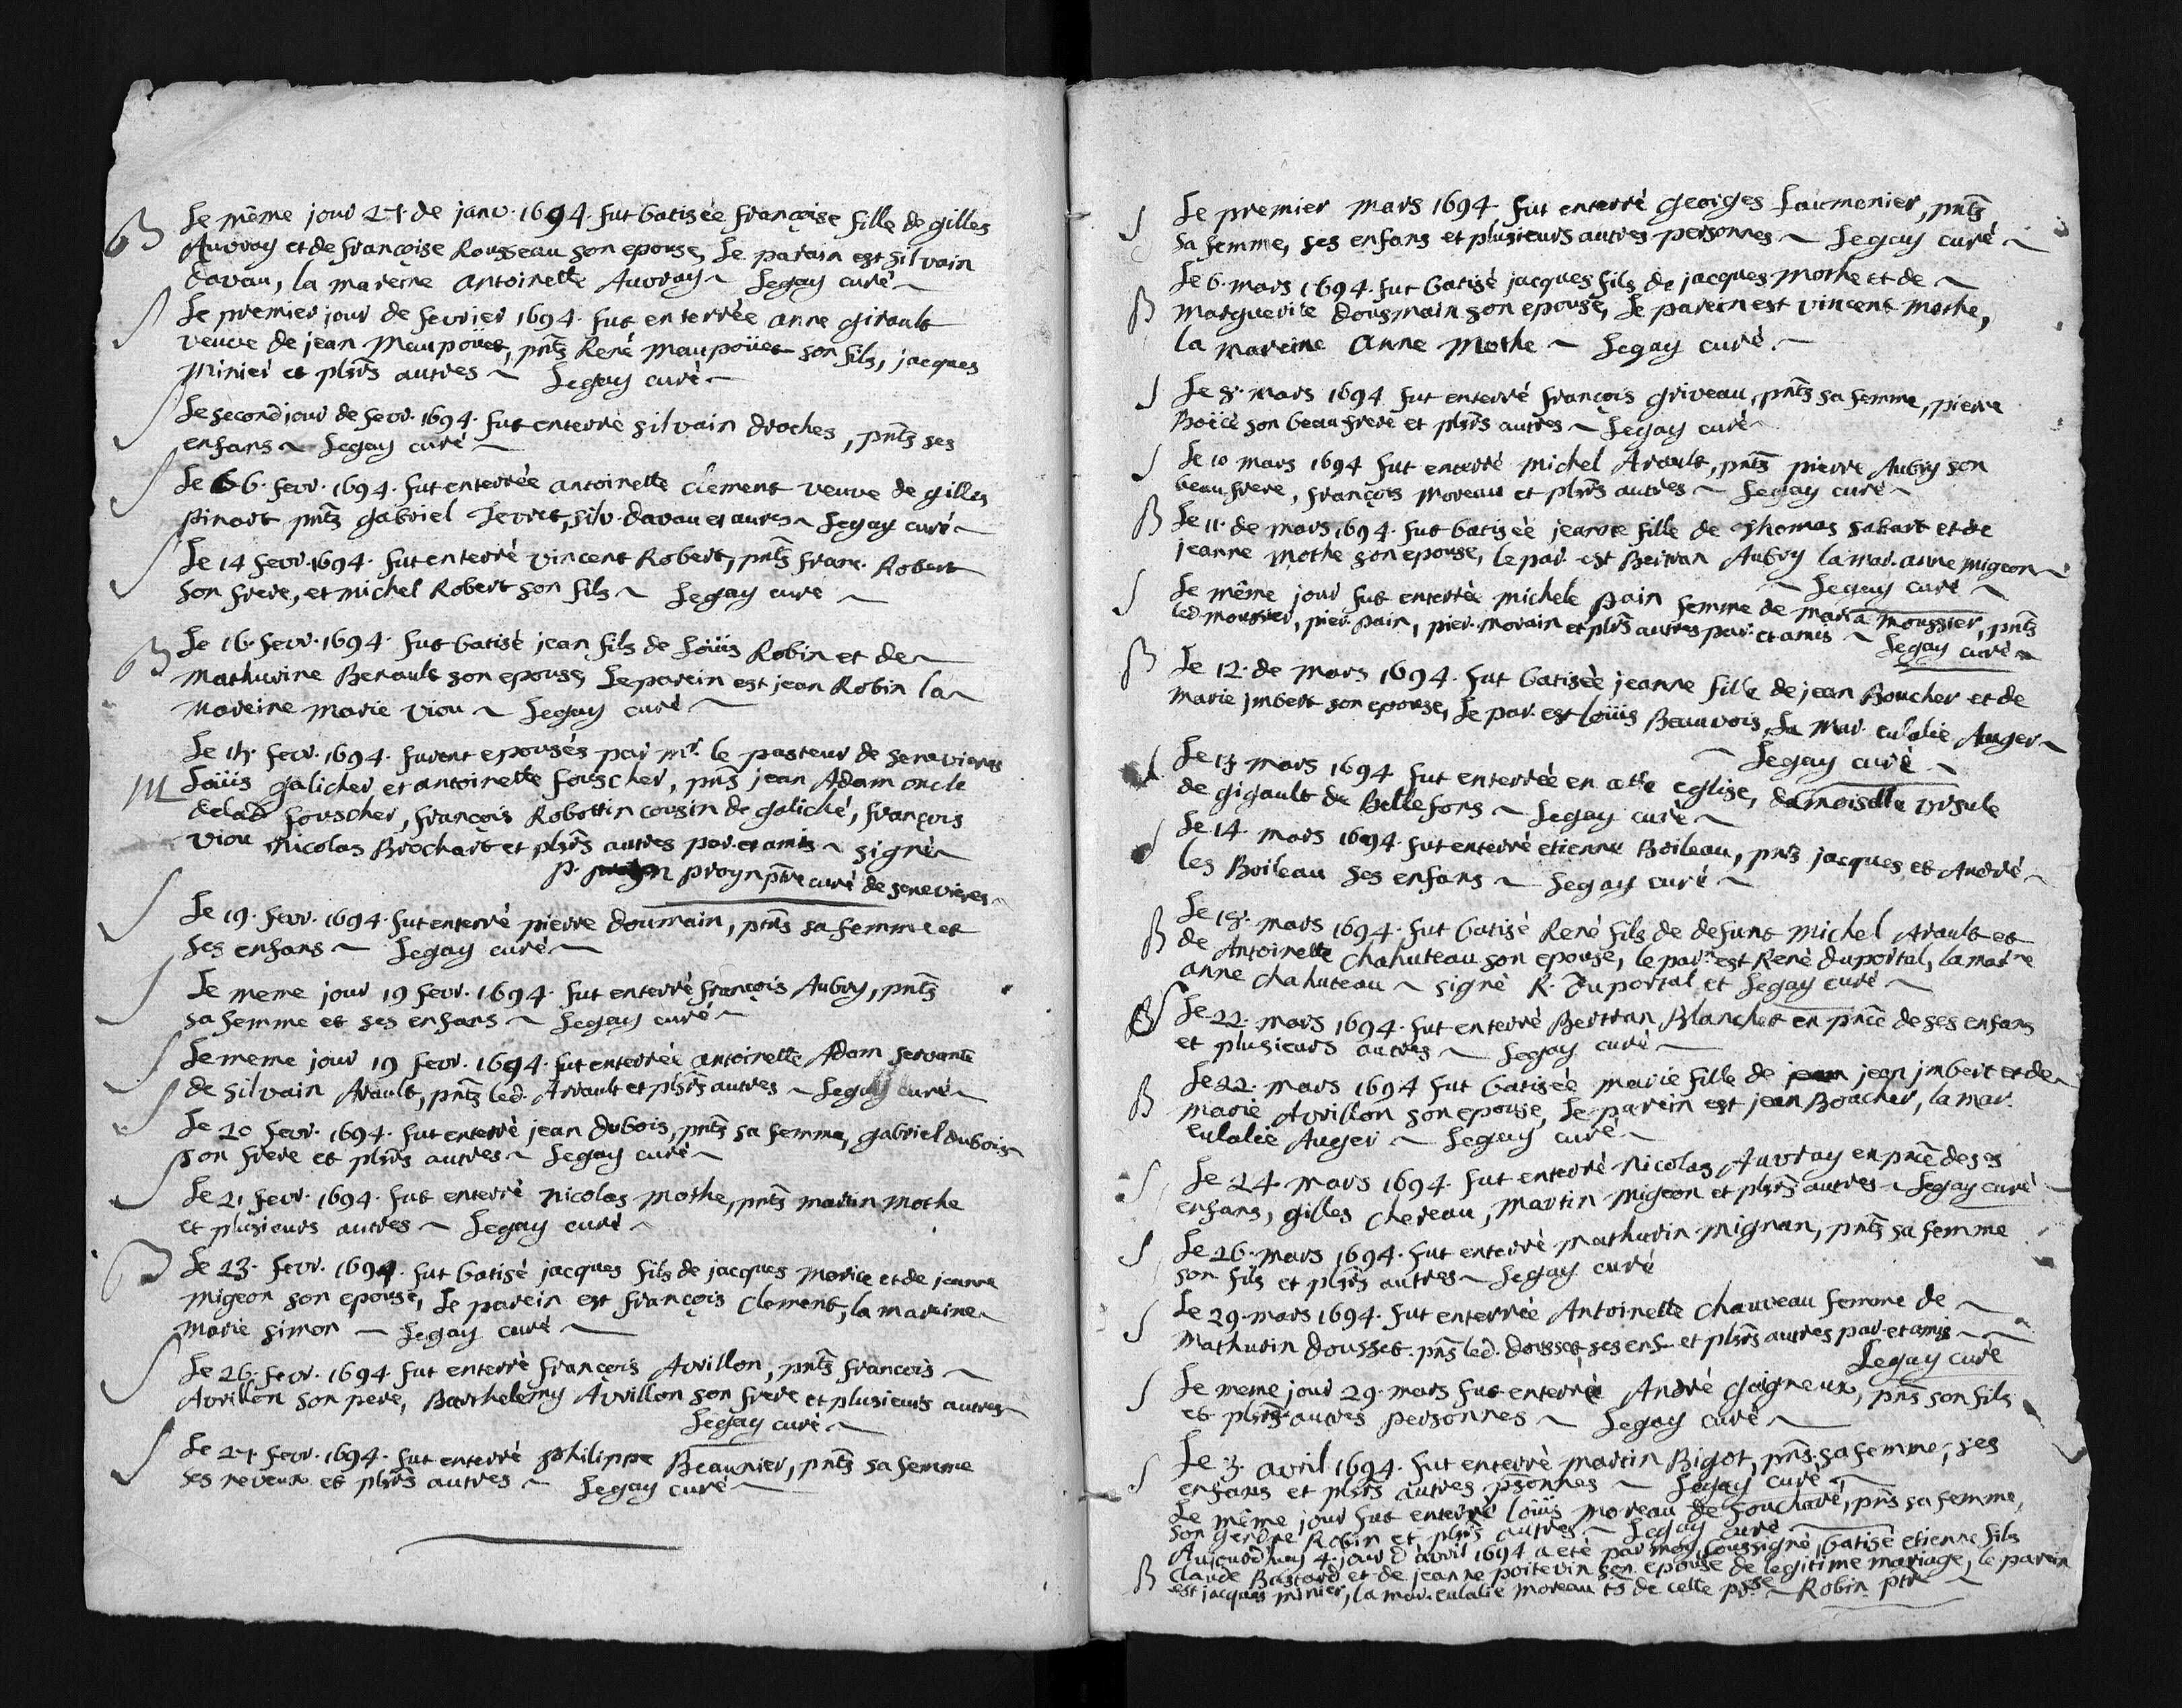 B Le même jour 27. de janv. 1694. fut batisée françoise fille de gilles
Auvray et de françoise Rousseau son epouse, Le parain est silvain
davau, la mareine antoinette Auvray ~ Legay curé ~
S Le premier jour de fevrier 1694. fut enterrée anne girault
veuve de jean Maupoüet, pnts René Maupoüet son fils, jacques
Minier et plsrs autres ~ Legay curé ~
S Le second jour de fevr. 1694. fut enterré silvain droches, pnts ses
enfans ~ Legay curé ~
S Le 6. fevr. 1694. fut enterrée antoinette clement veuve de gilles
pinart pnts gabriel Jevret, silv. davau et autres ~ Legay curé ~
S Le 14 fevr. 1694. fut enterré vincent Robert, pnts franc. Robert
son frere, et michel Robert son fils ~ Legay curé ~
B Le 16. fevr. 1694. fut batisé jean fils de Loüis Robin et de ~
Mathurine Berault son epouse, Le parein est jean Robin la ~
Mareine marie viou ~ Legay curé ~
Le 17. fevr. 1694. furent epousés par mr. le pasteur de senevieres
M Loüis galicher et antoinette fouscher, pnts jean Adam oncle
delad. fouscher, françois Robottin cousin de galiché, françois
viou Nicolas Brochart et plsrs autres par. et amis ~ signé
P. progn ptre curé de senevieres ~
S Le 19. fevr. 1694. fut enterré pierre doumain, pnts sa femme et
ses enfans ~ Legay curé ~
S Le meme jour 19 fevr. 1694. fut enterré françois Aubry, pnts
sa femme et ses enfans ~ Legay curé ~
S Le meme jour 19 fevr. 1694. fut enterrée antoinette Adam servante
de silvain Arault, pnts led. Arrault et plsrs autres ~ Legay curé ~
S Le 20 fevr. 1694. fut enterré jean dubois, pnts sa femme, gabriel dubois
son frere et plsrs autres ~ Legay curé ~
S Le 21 fevr. 1694. fut enterré Nicolas Mothe, pnts martin Mothe
et plusieurs autres ~ Legay curé ~
B Le 23. fevr. 1694. fut batisé jacques fils de jacques Morice et de jeanne
Migeon son epouse, Le parein est françois Clement, la mareine
Marie simon ~ Legay curé ~
S Le 26. fevr. 1694 fut enterré françois Avrillon, pnts francois ~
Avrillon son pere, Barthelemy Avrillon son frere et plusieurs autres
Legay curé ~
S Le 27. fevr. 1694. fut enterré philippe Beaunier, pnts sa femme
ses neveux et plsrs autres ~ Legay curé ~
S Le premier mars 1694. fut enterré georges Laumonier, pnts
sa femme, ses enfans et plusieurs autres personnes ~ Legay curé ~
Le 6. mars 1694. fut batisé jacques fils de jacques Mothe et de ~
B Marguerite dousmain son epouse, Le parein est vincent Mothe,
la mareine Anne Mothe ~ Legay curé. ~
S Le 8. mars 1694 fut enterré françois griveau, pnts sa femme, pierre
Boëcé son beaufrere et plsrs autres ~ Legay curé ~
S Le 10 mars 1694 fut enterré michel Arault, pnts pierre Aubry son
beaufrere, françois Moreau et plsrs autres ~ Legay curé ~
B Le 11. de mars 1694. fut batisée jeanne fille de Thomas sabart et de
jeanne Mothe son epouse, le par. est Bertran Aubry la mar. anne migeon
~ Legay curé ~
S Le même jour fut enterrée michele pain femme de moussier, pnts
led moussier, pier. pain, pier. morain et plsrs autres par. et amis ~ Legay curé ~
B Le 12. de mars 1694. fut batisée jeanne fille de jean Boucher et de
Marie jmbert son epouse, Le par. est loüis Beauvois, La Mar. eulalie Auger ~
~ Legay curé ~
S Le 13 mars 1694 fut enterrée en cette eglise, damoiselle ursule
de gigault de Bellefons ~ Legay curé ~
S Le 14. mars 1694. fut enterré etienne Boileau, pnts jacques et André ~
les Boileau ses enfans ~ Legay curé ~
Le 18. mars 1694. fut batisé René fils de defunt michel Arault et
B de Antoinette chahuteau son epouse, le par. est René duportal, la marne
anne chahuteau ~ signé R. Duportal et Legay curé ~
S Le 22. mars 1694. fut enterré Bertran Blanchet en pnce de ses enfans
et plusieurs autres ~ Legay curé ~
Le 22. mars 1694 fut batisée marie fille de jean jmbert et de ~
B marie Avrillon son epouse, Le parein est jean Boucher, la mar.
eulalie Auger ~ Legay curé ~
S Le 24. mars 1694. fut enterré Nicolas Auvray en pnce de ses
enfans, gilles chereau, Martin Migeon et plsrs autres ~ Legay curé
S Le 26. mars 1694. fut enterré Mathurin Mignan, pnts sa femme
son fils et plsrs autres ~ Legay curé
S Le 29. mars 1694. fut enterrée Antoinette chauveau femme de ~
Mathurin dousset. pnts led. dousset, ses enf. et plsrs autres par. et amis ~
Legay curé
S Le meme jour 29. mars fut enterré André gaigneux, pnts son fils
et plsrs autres personnes ~ Legay curé ~
S Le 3. avril 1694. fut enterré martin Bigot, pnts. sa femme, ses
enfans et plsrs autres psonnes ~ Legay curé ~
Le même jour fut enterré loüis Moreau de fouchard, pnts sa femme,
son gendre Robin et plsrs autres ~ Legay curé
Aujourd'huy 4. jour d'avril 1694 a eté par moy soussigné, batisé etienne fils
B claude Bastard et de jeanne poitevin son epouse de legitime mariage, le parein
est jacques minier, la mar. eulalie moreau ts de celle psse ~ Robin ptre ~